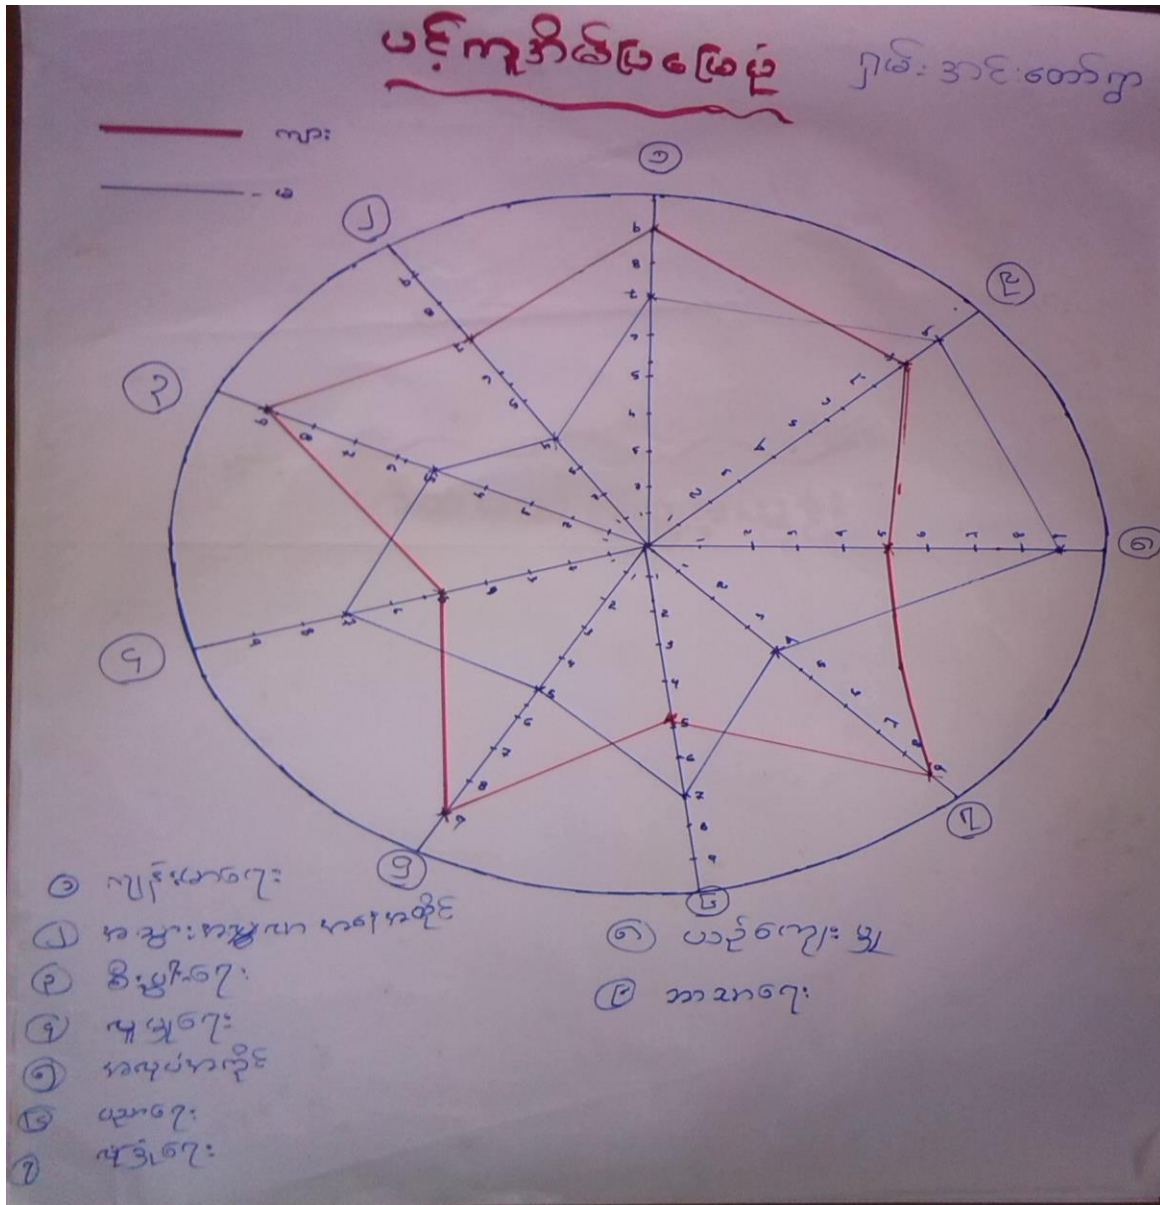 ပင့်ကူအိမ်ပြမြေပုံ
ရှမ်းအင်းတော်ရွာ
ကျား
- မ
၁
၂
၃
၄
၅
၆
၇
၈
၉
၁ ကျန်းမာရေး
၂ အသွားအလာ အနေအထိုင်
၃ စီးပွါးရေး
၄ လူမှုရေး
၅ အလုပ်အကိုင်
၆ ပညာရေး
၇ လုံခြုံရေး
၈ ယဉ်ကျေးမှု
၉ ဘာသာရေး